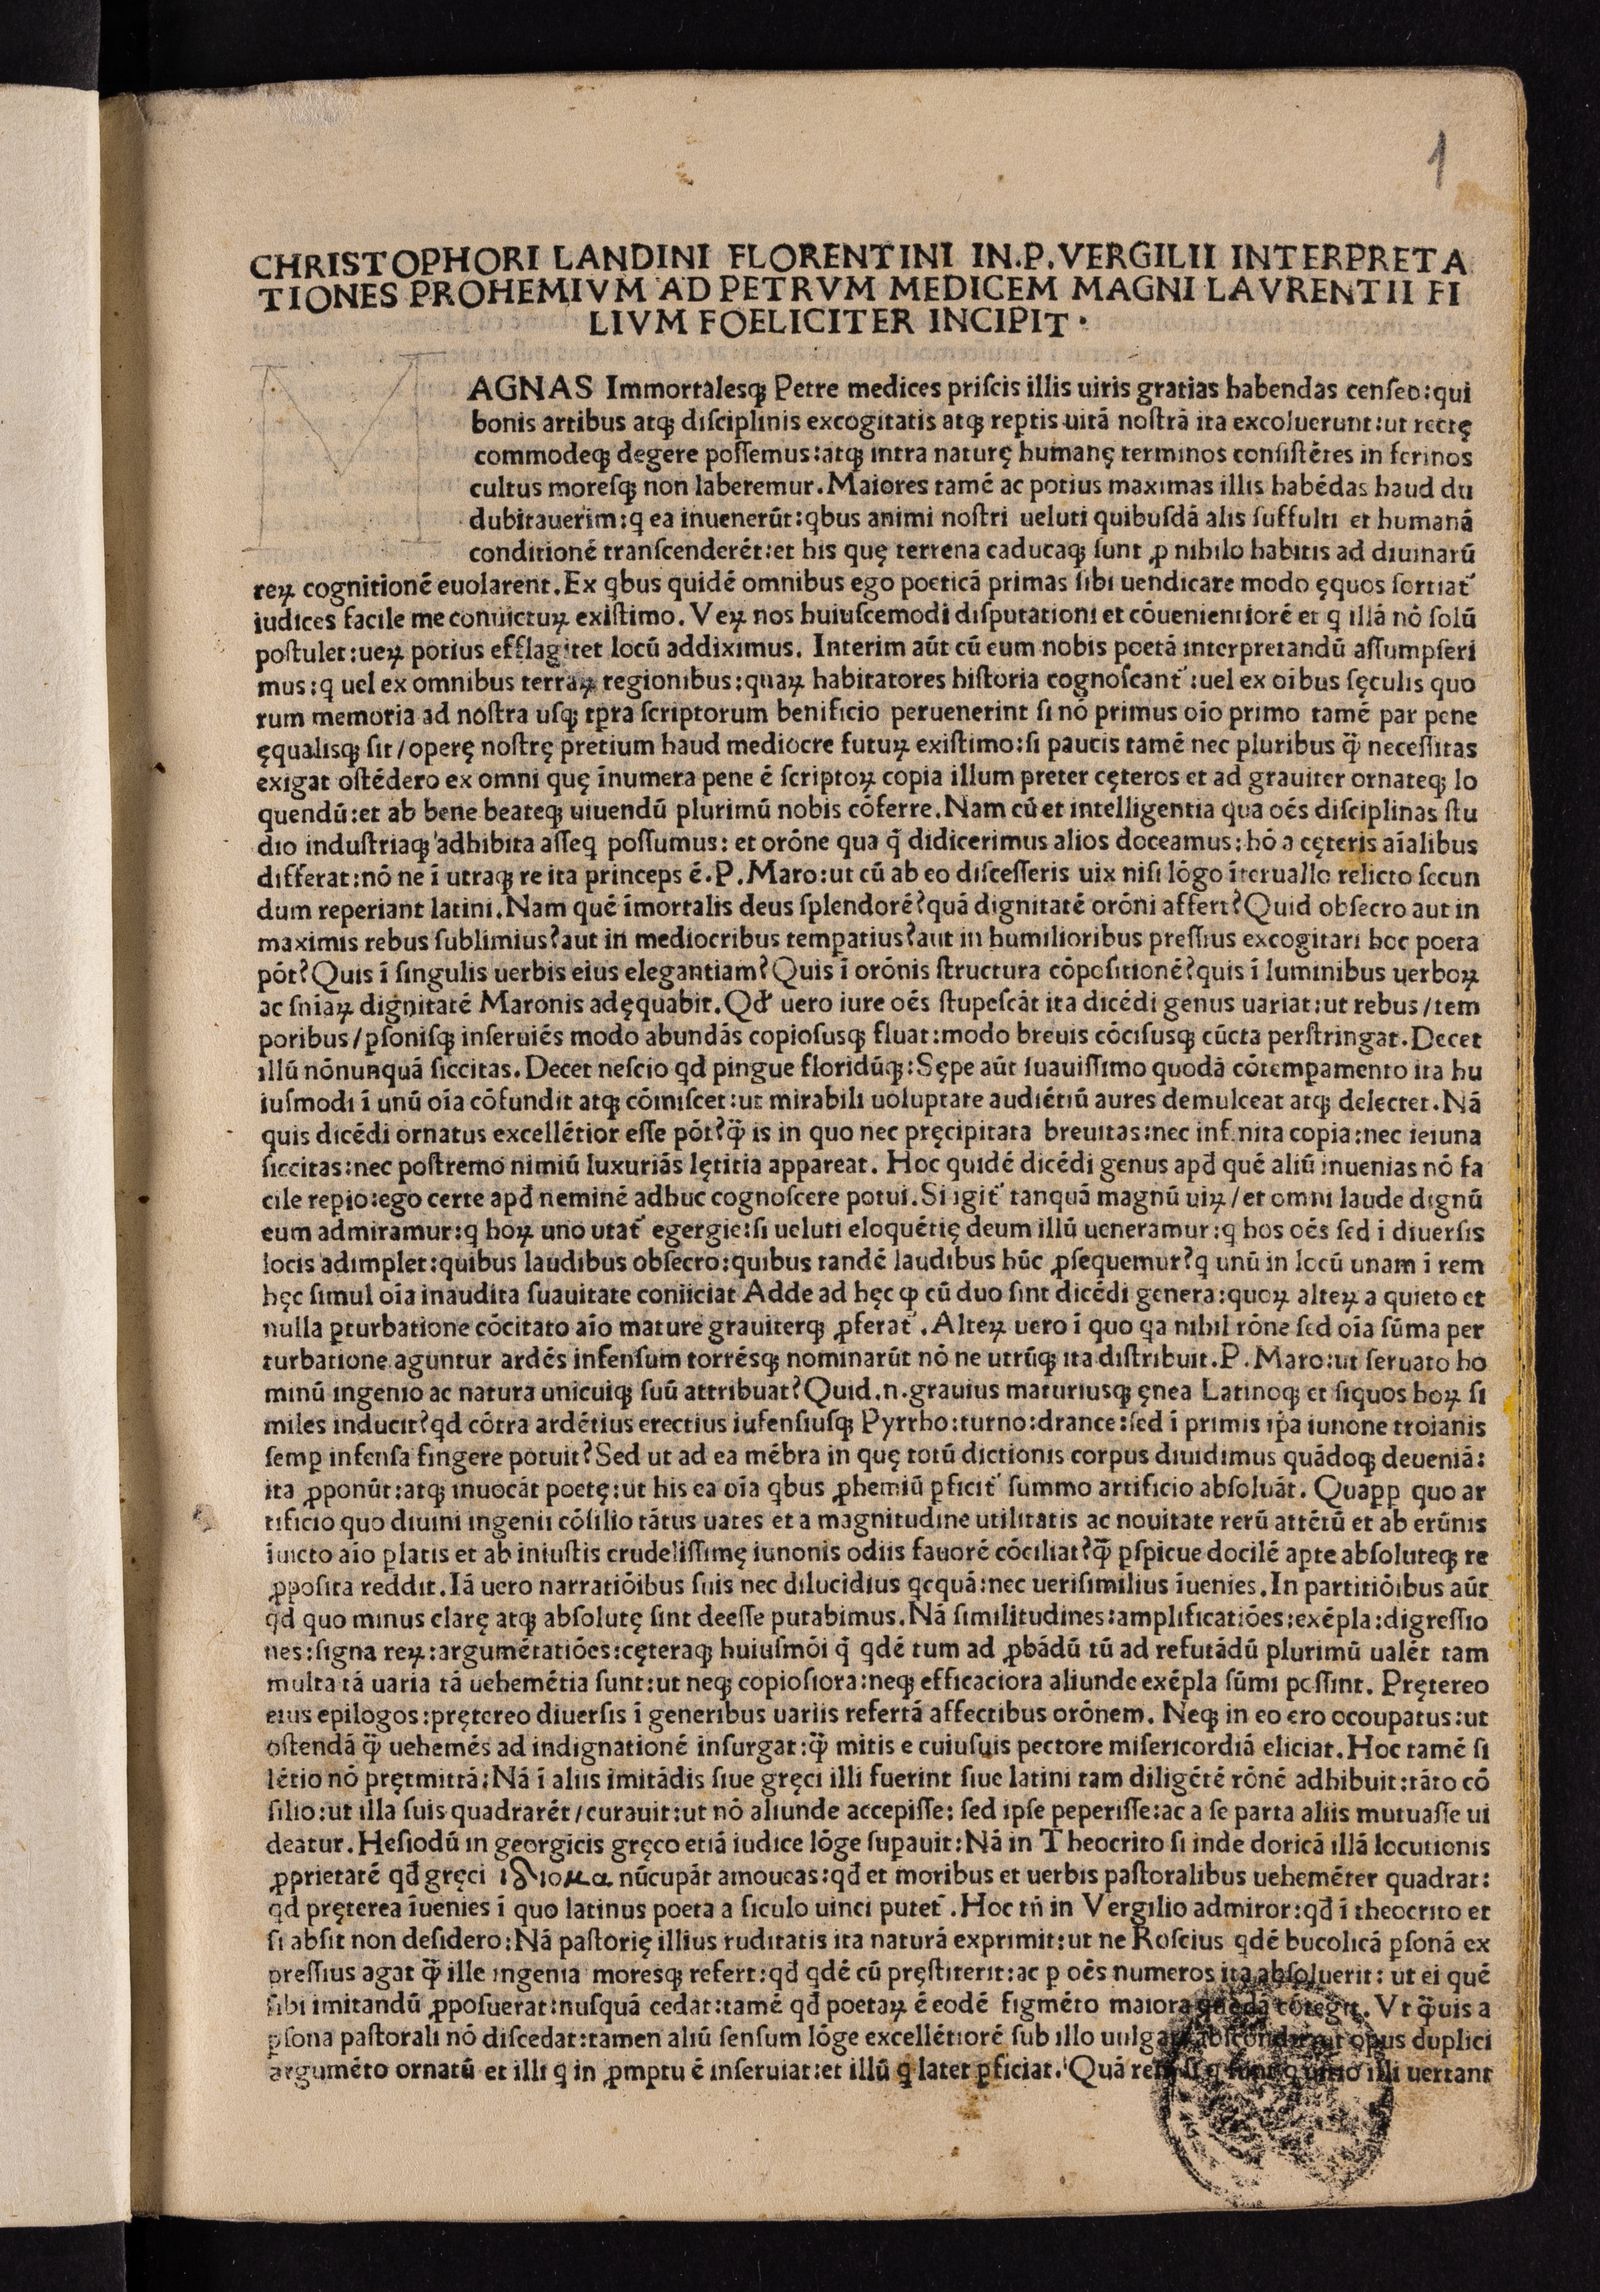 1
CHRISTOPHORI LANDINI FLORENTINI IN.P.VERGILII INTERPRETA
TIONES PROHEMIVM AD PETRVM MEDICEM MAGNI LAVRENTII FI
LIVM FOELICITER INCIPIT.
M
AGNAS Immortalesqꝫ Petre medices priſcis illis uiris gratias habendas cenſeo:qui
bonis artibus atqꝫ diſciplinis excogitatis atqꝫ reꝑtis uitā noſtrā ita excoluerunt:ut rectę
commodeqꝫ degere poſſemus:atqꝫ intra naturę humanę terminos conſiſtētes in ferinos
cultus moreſqꝫ non laberemur.Maiores tamē ac potius maximas illis habēdas haud du
dubitauerim:ꝗ ea inuenerūt:ꝗbus animi noſtri ueluti quibuſdā alis ſuffulti et humanā
conditionē tranſcenderēt:et his quę terrena caducaqꝫ ſunt ꝓ nihilo habitis ad diuinarū
reꝝ cognitionē euolarent.Ex ꝗbus quidē omnibus ego poeticā primas ſibi uendicare modo ęquos ſortiat᷑
iudices facile me conuictuꝝ exiſtimo.Veꝝ nos huiuſcemodi diſputationi et cōuenientiorē et ꝗ illā nō ſolū
poſtulet:ueꝝ potius efflagitet locū addiximus. Interim aūt cū eum nobis poetā interpretandū aſſumpſeri
mus:ꝗ uel ex omnibus terraꝝ regionibus:quaꝝ habitatores hiſtoria cognoſcant᷑:uel ex oībus ſęculis quo
rum memoria ad noſtra uſqꝫ tꝑra ſcriptorum benificio peruenerint ſi nō primus oīo primo tamē par pene
ęqualisqꝫ ſit/operę noſtrę pretium haud mediocre futuꝝ exiſtimo:ſi paucis tamē nec pluribus ꝗ̈ neceſſitas
exigat oſtēdero ex omni quę īnumera pene ē ſcriptoꝝ copia illum preter cęteros et ad grauiter ornateqꝫ lo
quendū:et ab bene beateqꝫ uiuendū plurimū nobis cōferre.Nam cū et intelligentia qua oēs diſciplinas ſtu
dio induſtriaqꝫ adhibita aſſeꝗ poſſumus: et orōne qua ꝗ̄ didicerimus alios doceamus:hō a cęteris aīalibus
differat:nō ne ī utraqꝫ re ita princeps ē.P.Maro:ut cū ab eo diſceſſeris uix niſi lōgo īteruallo relicto ſecun
dum reperiant latini.Nam quē īmortalis deus ſplendorē?quā dignitatē orōni affert?Quid obſecro aut in
maximis rebus ſublimius?aut in mediocribus temꝑatius?aut in humilioribus preſſius excogitari hoc poeta
pōt?Quis ī ſingulis uerbis eius elegantiam?Quis ī orōnis ſtructura cōpoſitionē?quis ī luminibus uerboꝝ
ac ſniaꝝ dignitatē Maronis adęquabit.Qđ uero iure oēs ſtupeſcāt ita dicēdi genus uariat:ut rebus/tem
poribus/ꝑſoniſqꝫ inſeruiēs modo abundās copioſusqꝫ fluat:modo breuis cōciſusqꝫ cūcta perſtringat.Decet
illū nōnunquā ſiccitas.Decet neſcio qđ pingue floridūqꝫ:Sępe aūt ſuauiſſimo quodā cōtemꝑamento ita hu
iuſmodi ī unū oīa cōfundit atqꝫ cōmiſcet:ut mirabili uoluptate audiētiū aures demulceat atqꝫ delectet.Nā
quis dicēdi ornatus excellētior eſſe pōt?ꝗ̈ is in quo nec pręcipitata breuitas:nec infinita copia:nec ieiuna
ſiccitas:nec poſtremo nimiū luxuriās lętitia appareat. Hoc quidē dicēdi genus apđ quē aliū inuenias nō fa
cile reꝑio:ego certe apđ neminē adhuc cognoſcere potui.Si igit᷑ tanquā magnū uiꝝ/et omni laude dignū
eum admiramur:ꝗ hoꝝ uno utat᷑ egergie:ſi ueluti eloquētię deum illū ueneramur:ꝗ hos oēs ſed ī diuerſis
locis adimplet:quibus laudibus obſecro:quibus tandē laudibus hūc ꝓſequemur?ꝗ unū in locū unam ī rem
hęc ſimul oīa inaudita ſuauitate coniiciat Adde ad hęc ꝙ cū duo ſint dicēdi genera:quoꝝ alteꝝ a quieto et
nulla ꝑturbatione cōcitato aīo mature grauiterqꝫ ꝓferat᷑.Alteꝝ uero ī quo ꝗa nihil rōne ſed oīa ſūma per
turbatione aguntur ardēs infenſum torrēsqꝫ nominarūt nō ne utrūqꝫ ita diſtribuit.P.Maro:ut ſeruato ho
minū ingenio ac natura unicuiqꝫ ſuū attribuat?Quid.n.grauius maturiusqꝫ ęnea Latinoqꝫ et ſiquos hoꝝ ſi
miles inducit?qđ cōtra ardētius erectius iufenſiuſqꝫ Pyrrho:turno:drance:ſed ī primis iꝑa iunone troianis
ſemꝑ infenſa fingere potuit?Sed ut ad ea mēbra in quę totū dictionis corpus diuidimus quādoqꝫ deueniā:
ita ꝓponūt:atqꝫ inuocāt poetę:ut his ea oīa ꝗbus ꝓhemiū ꝑficit᷑ ſummo artificio abſoluāt. Quaꝑꝑ quo ar
tificio quo diuini ingenii cōſilio tātus uates et a magnitudine utilitatis ac nouitate rerū attētū et ab erūnis
īuicto aīo ꝑlatis et ab iniuſtis crudeliſſimę iunonis odiis fauorē cōciliat?ꝗ̈ ꝑſpicue docilē apte abſoluteqꝫ re
ꝓpoſita reddit.Iā uero narratiōibus ſuis nec dilucidius ꝗcquā:nec ueriſimilius īuenies.In partitiōibus aūt
qđ quo minus clarę atqꝫ abſolutę ſint deeſſe putabimus.Nā ſimilitudines:amplificatiōes:exēpla:digreſſio
nes:ſigna reꝝ:argumētatiōes:cęteraqꝫ huiuſmōi ꝗ̄ ꝗdē tum ad ꝓbādū tū ad refutādū plurimū ualēt tam
multa tā uaria tā uehemētia ſunt:ut neqꝫ copioſiora:neqꝫ efficaciora aliunde exēpla ſūmi poſſint. Pręterео
eius epilogos:pręterео diuerſis ī generibus uariis refertā affectibus orōnem. Neqꝫ in eo ero occupatus:ut
oſtendā ꝗ̈ uehemēs ad indignationē inſurgat:ꝗ̈ mitis e cuiuſuis pectore miſericordiā eliciat.Hoc tamē ſi
lētio nō pręt̄mittā:Nā ī aliis imitādis ſiue gręci illi fuerint ſiue latini tam diligētē rōnē adhibuit:tāto cō
ſilio:ut illa ſuis quadrarēt/curauit:ut nō aliunde accepiſſe: ſed ipſe peperiſſe:ac a ſe parta aliis mutuaſſe ui
deatur.Heſiodū in georgicis gręco etiā iudice lōge ſuꝑauit:Nā in Theocrito ſi inde doricā illā locutionis
ꝓprietatē qđ gręci ιδιομα nūcupāt amoueas:qđ et moribus et uerbis paſtoralibus uehemēter quadrat:
qđ pręterea īuenies ī quo latinus poeta a ſiculo uinci putet᷑.Hoc tn̄ in Vergilio admiror:qđ ī theocrito et
ſi abſit non deſidero:Nā paſtorię illius ruditatis ita naturā exprimit:ut ne Roſcius ꝗdē bucolicā ꝑſonā ex
preſſius agat ꝗ̈ ille ingenia moresqꝫ refert:qđ ꝗdē cū pręſtiterit:ac ꝑ oēs numeros ita abſoluerit: ut ei quē
ſibi imitandū ꝓpoſuerat:nuſquā cedat:tamē qđ poetaꝝ ē eodē figmēto maiora quędā cōtegit.Vt ꝗ̈uis a
ꝑſona paſtorali nō diſcedat:tamen aliū ſenſum lōge excellētiorē ſub illo opus duplici
argumēto ornatū et illi ꝗ in ꝓmptu ē inſeruiat:et illū ꝗ latet ꝑficiat.Quā illi uertant